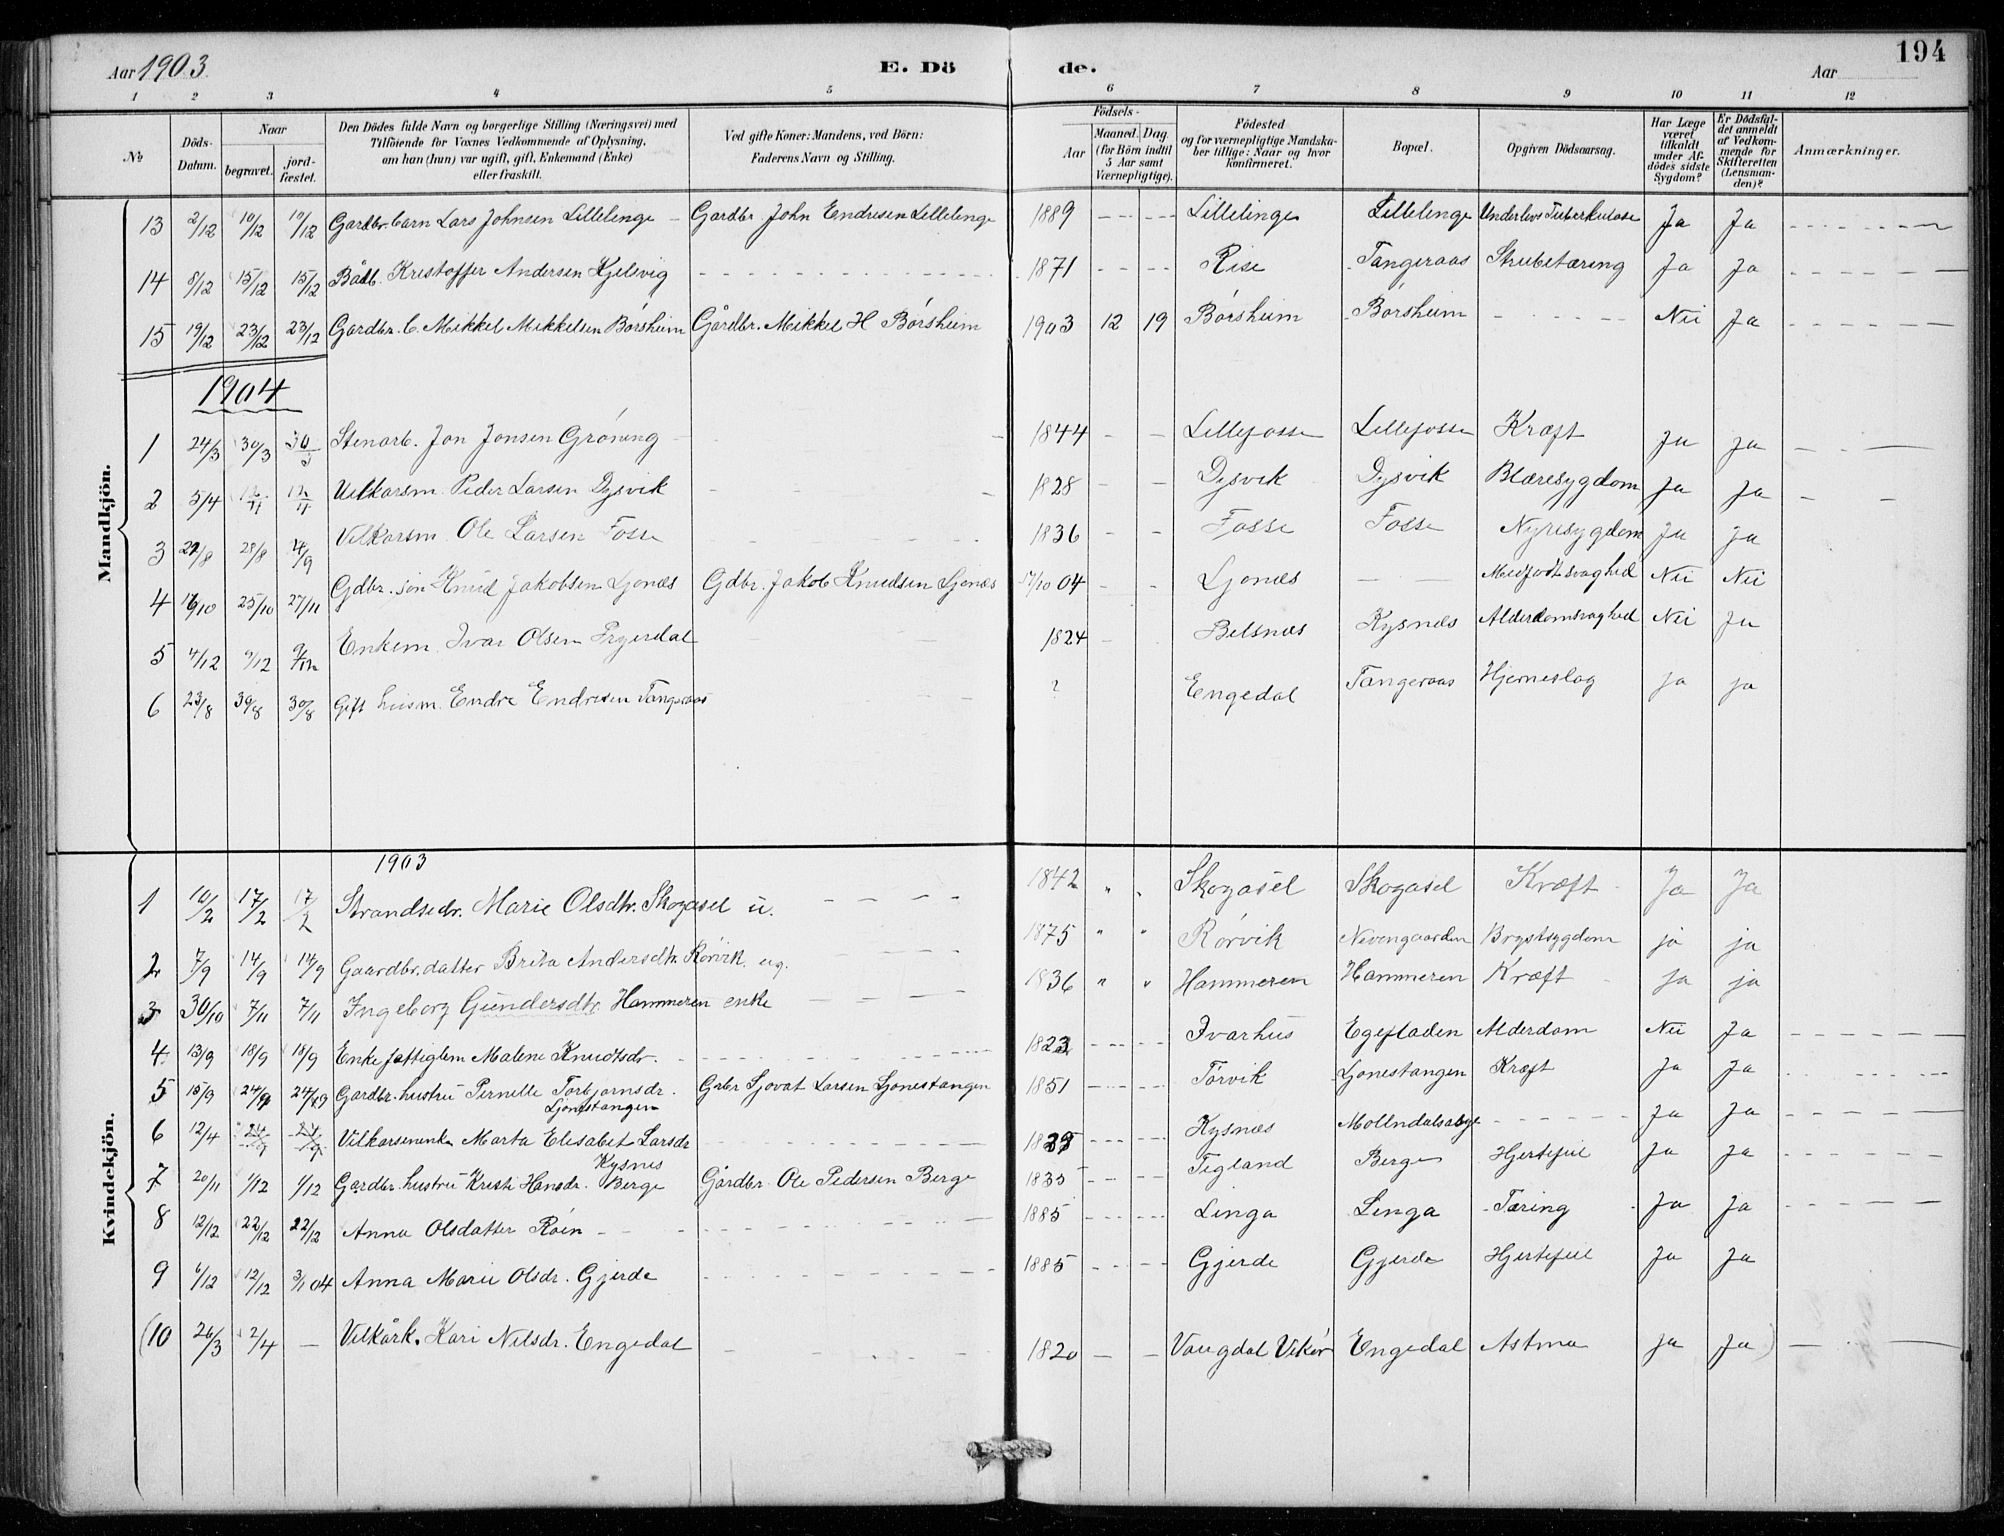 Aar 1903. E. Döde. Aar 194
1 2 3 4 5 6 7 8 9 10 11 12
№ Döds-Datum. Naar begravet. jordfæstet. Den Dödes fulde Navn og borgerlige Stilling (Næringsvei) med Tilföiende for Voxnes Vedkommende af Oplysning, om han (hun) var ugift, gift, Enkemand (Enke) eller fraskilt. Ved gifte Koner: Mandens, ved Börn: Faderens Navn og Stilling. Födsels- Aar Maaned. Dag. (for Börn indtil 5 Aar samt Værnepligtige). Födested og for værnepligtige Mandskaber tillige: Naar og hvor konfirmeret. Bopæl. Opgiven Dödsaarsag. Har Læge været tilkaldt under Afdödes sidste Sygdom? Er Dödsfaldet anmeldt af Vedkommende for Skifteretten (Lensmanden)? Anmærkninger.
Mandkjön.
13 2/12 10/12 10/12 Gardbr. barn Lars Johnsen Lillelinge Gardbr. John Endresen Lillelinge 1889 Lillelinge Lillelinge Underlivs Tuberkulose Ja Ja
14 8/12 15/12 15/12 Bådb. Kristoffer Andersen Kjelsvig 1871 Rise Tangeraas Strubetæring Ja Ja
15 19/12 23/12 23/12 Gardbr. b. Mikkel Mikkelsen Börsheim Gårdbr. Mikkel H Börsheim 1903 12 19 Börsheim Börsheim Nei Ja
1904
1 24/3 30/3 30/3 Stenarb. Jon Jonsen Gröning 1844 Lillefosse Lillefosse Kræft Ja Ja
2 5/4 12/4 12/4 Vilkarsm. Peder Larsen Dysvik 1828 Dysvik Dysvik Blæresygdom Ja Ja
3 22/8 28/8 4/9 Vilkarsm. Ole Larsen Fosse 1836 Fosse Fosse Nyresygdom Ja Ja
4 18/10 25/10 27/11 Gdbr. sön Knud Jakobsen Ljonæs Gdbr. Jakob Knudsen Ljonæs 17/10 04 Ljonæs Medfödt svaghed Nei Nei
5 4/12 9/12 9/12 Enkem. Ivar Olsen Tryerdal 1824 Belsnæs Kysnæs Alderdomsvaghed Nei Ja
6 23/8 30/8 30/8 Gift husm. Endre Endresen Tangeraas ? Engedal Tangeraas Hjerneslag ja ja
Kvindekjön.
1903
1 10/2 17/2 17/2 Strandsedr. Marie Olsdtr. Skogasel u. 1842 " " Skogasel Skogasel Kræft Ja Ja
2 7/9 14/9 14/9 Gaardbr. datter Brita Andersdtr. Rörvik ug. 1875 " " Rörvik Nevengaarden Brystsygdom ja ja
3 30/10 7/11 7/11 Ingeborg Gundersdtr. Hammeren enke 1836 " " Hammeren Hammeren Kræft ja ja
4. 13/9 18/9 18/9 Enke fattiglem Malene Knudtsdr. 1823 Ivarhus Egefladen Alderdom Nei Ja
5 18/9 24/9 24/9 Gardbr. hustru Pernelle Torbjornsdr. Ljonestangen Grbr Sjovat Larsen Ljonestangen 1851 Törvik Ljonestangen Kræft Ja Ja
6 12/4 Vilkarsenenke Marta Elisabet Larsdr Kysnes Kysnæs Mollendalsabye Ja Ja
7 20/11 1/12 1/12 Gardbr. hustru Kristi Hansdr. Berge Gårdbr. Ole Pedersen Berge 1835 Tigland Berge Hjertefeil Ja Ja
8 12/12 22/12 22/12 Anna Olsdatter Röen 1885 Linga Linga Tæring Ja Ja
9 6/12 12/12 3/1 04 Anna Marie Olsdr. Gjerde 1885 Gjerde Gjerde Hjertefeil Ja Ja
(10 26/3 2/4 — Vilkårk. Kari Nilsdr. Engedal 1820 Vangdal Vikör Engedal Astma Ja Ja)